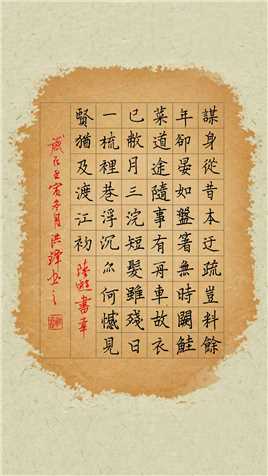 謀身從昔本迂疏豈料餘
年卻晏如盤箸無時闕鮭
菜道途隨事有舟車故衣
已敝月三浣短髮雖殘日
一梳裡巷浮沉尒何憾見
賢猶及渡江初 陸游書幸
歲在壬寅冬月洪書之